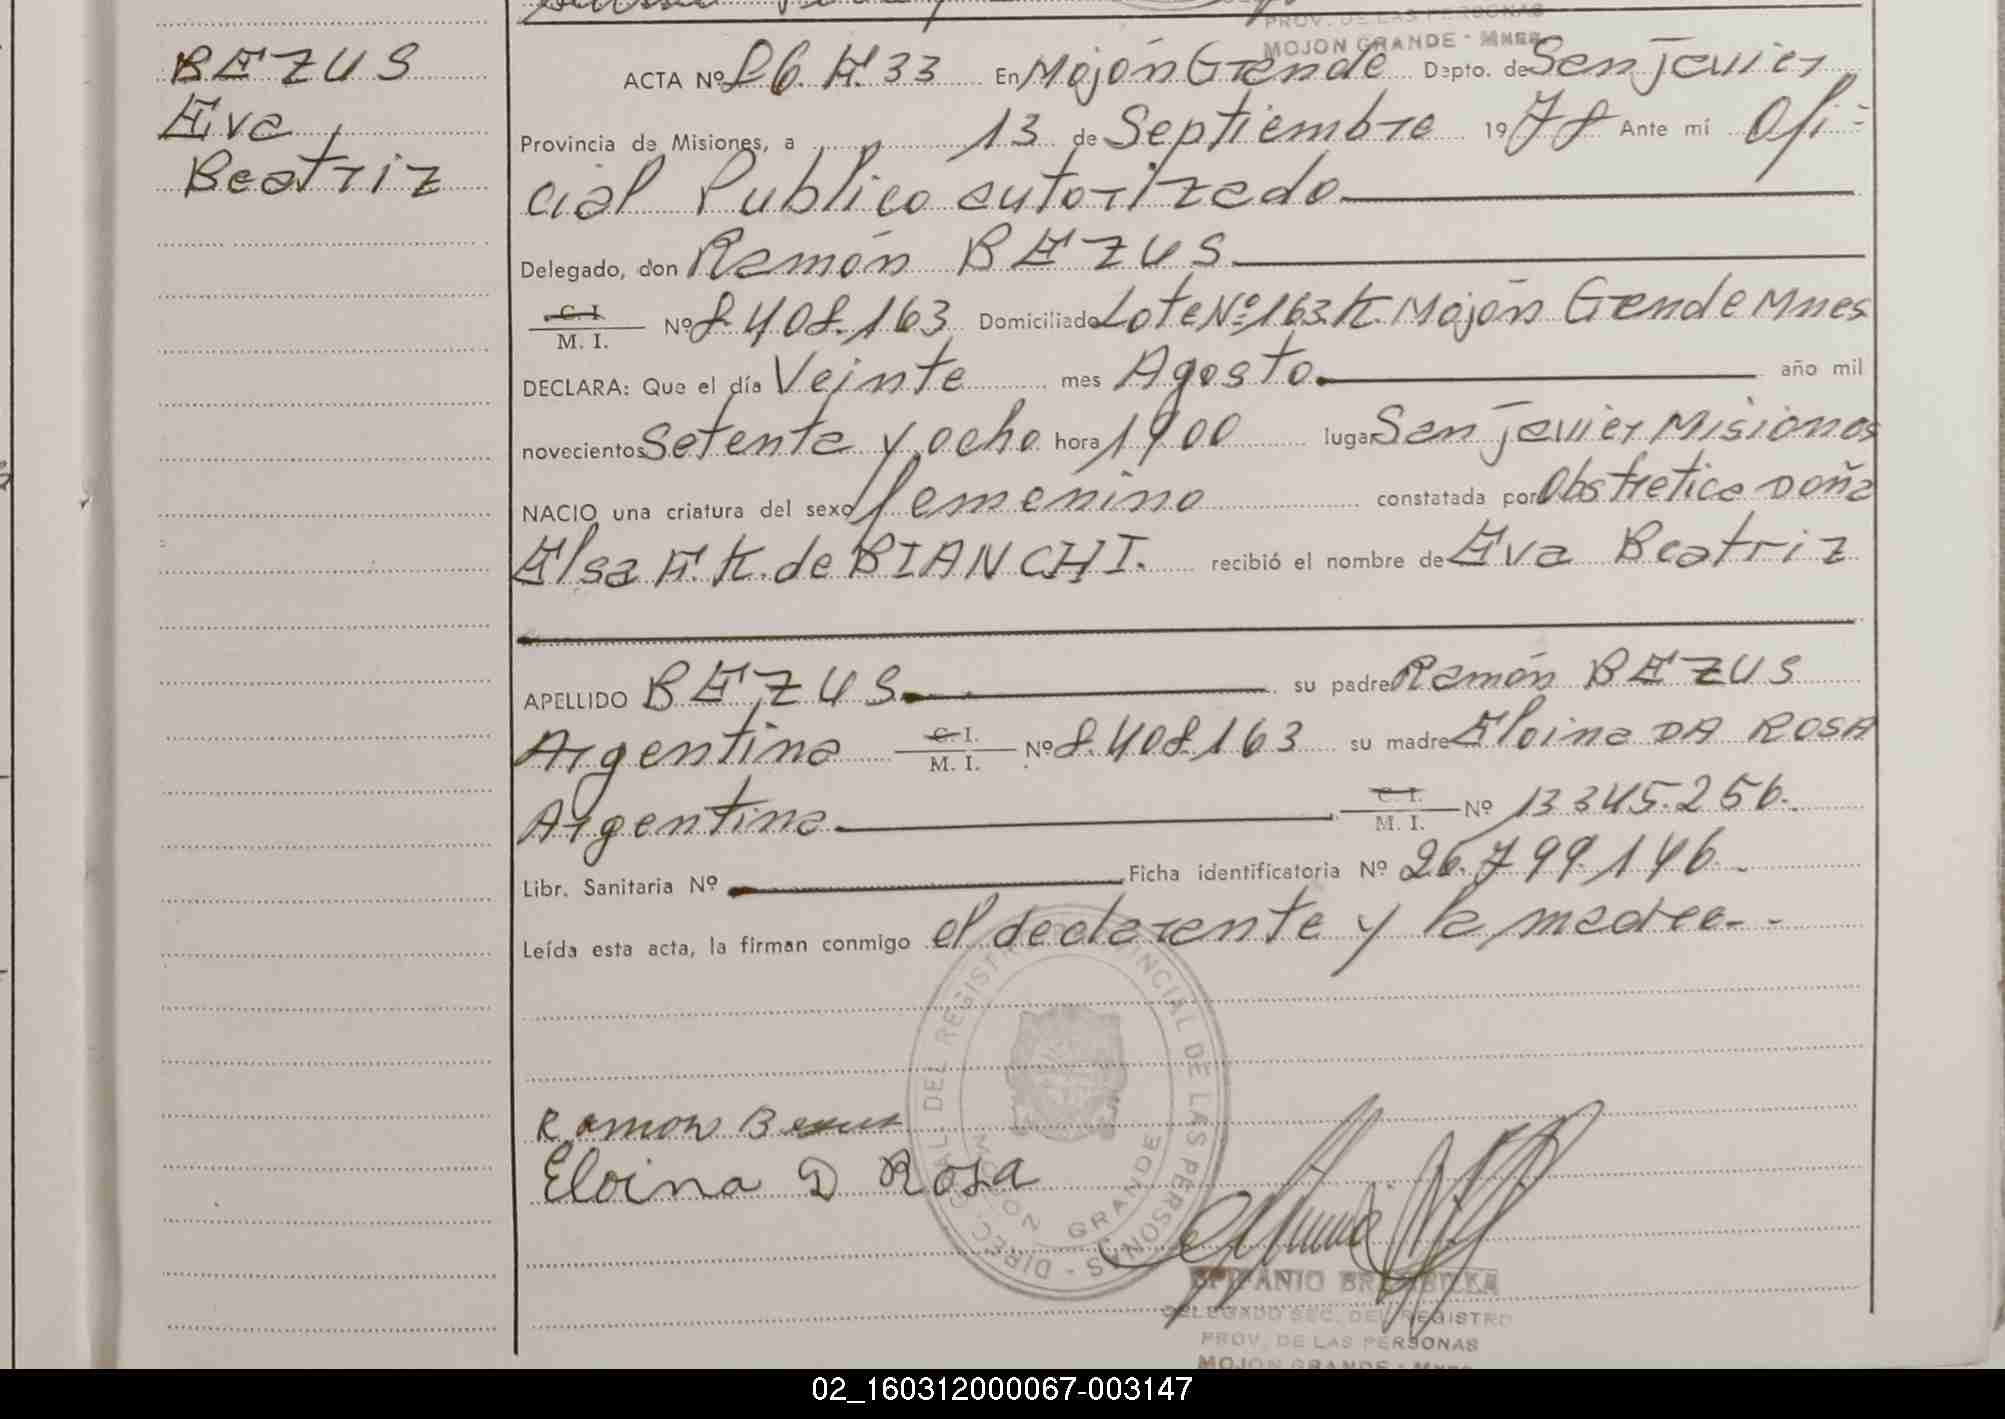 PROV. DE LAS PERSONAS
MOJON GRANDE - Mnes.
BEZUS
Eva
Beatriz
ACTA Nº 26. F. 33 En Mojón Grande Dpto. de San Javier
Provincia de Misiones, a 13 de Septiembre 1978 Ante mí Ofi-
cial Publico autorizado
Delegado, don Ramón BEZUS
C. I.
M. I. Nº 8.408.163 Domiciliado Lote Nº 163.K. Mojón Grande Mnes
DECLARA: Que el día Veinte mes Agosto. año mil
novecientos Setenta y ocho hora 1900 lugar San Javier Misiones
NACIO una criatura del sexo femenino constatada por Obstretica Doña
Elsa F. K. de BIANCHI. recibió el nombre de Eva Beatriz
APELLIDO BEZUS su padre Ramón BEZUS
Argentino C. I. M. I. Nº 8.408.163 su madre Eloina DA ROSA
Argentina C. I. M. I. Nº 13345.256.
Libr. Sanitaria Nº Ficha identificatoria Nº 26.799.146.
Leída esta acta, la firman conmigo el declarante y la madre--
Ramon Bezus
Eloina D Rosa
DIREC. GRAL. DEL REGISTRO PROVINCIAL DE LAS PERSONAS -
MOJON GRANDE
EPIFANIO
DELEGADO SEC. DEL REGISTRO
PROV. DE LAS PERSONAS
MOJON GRANDE - Mnes.
02_160312000067-003147